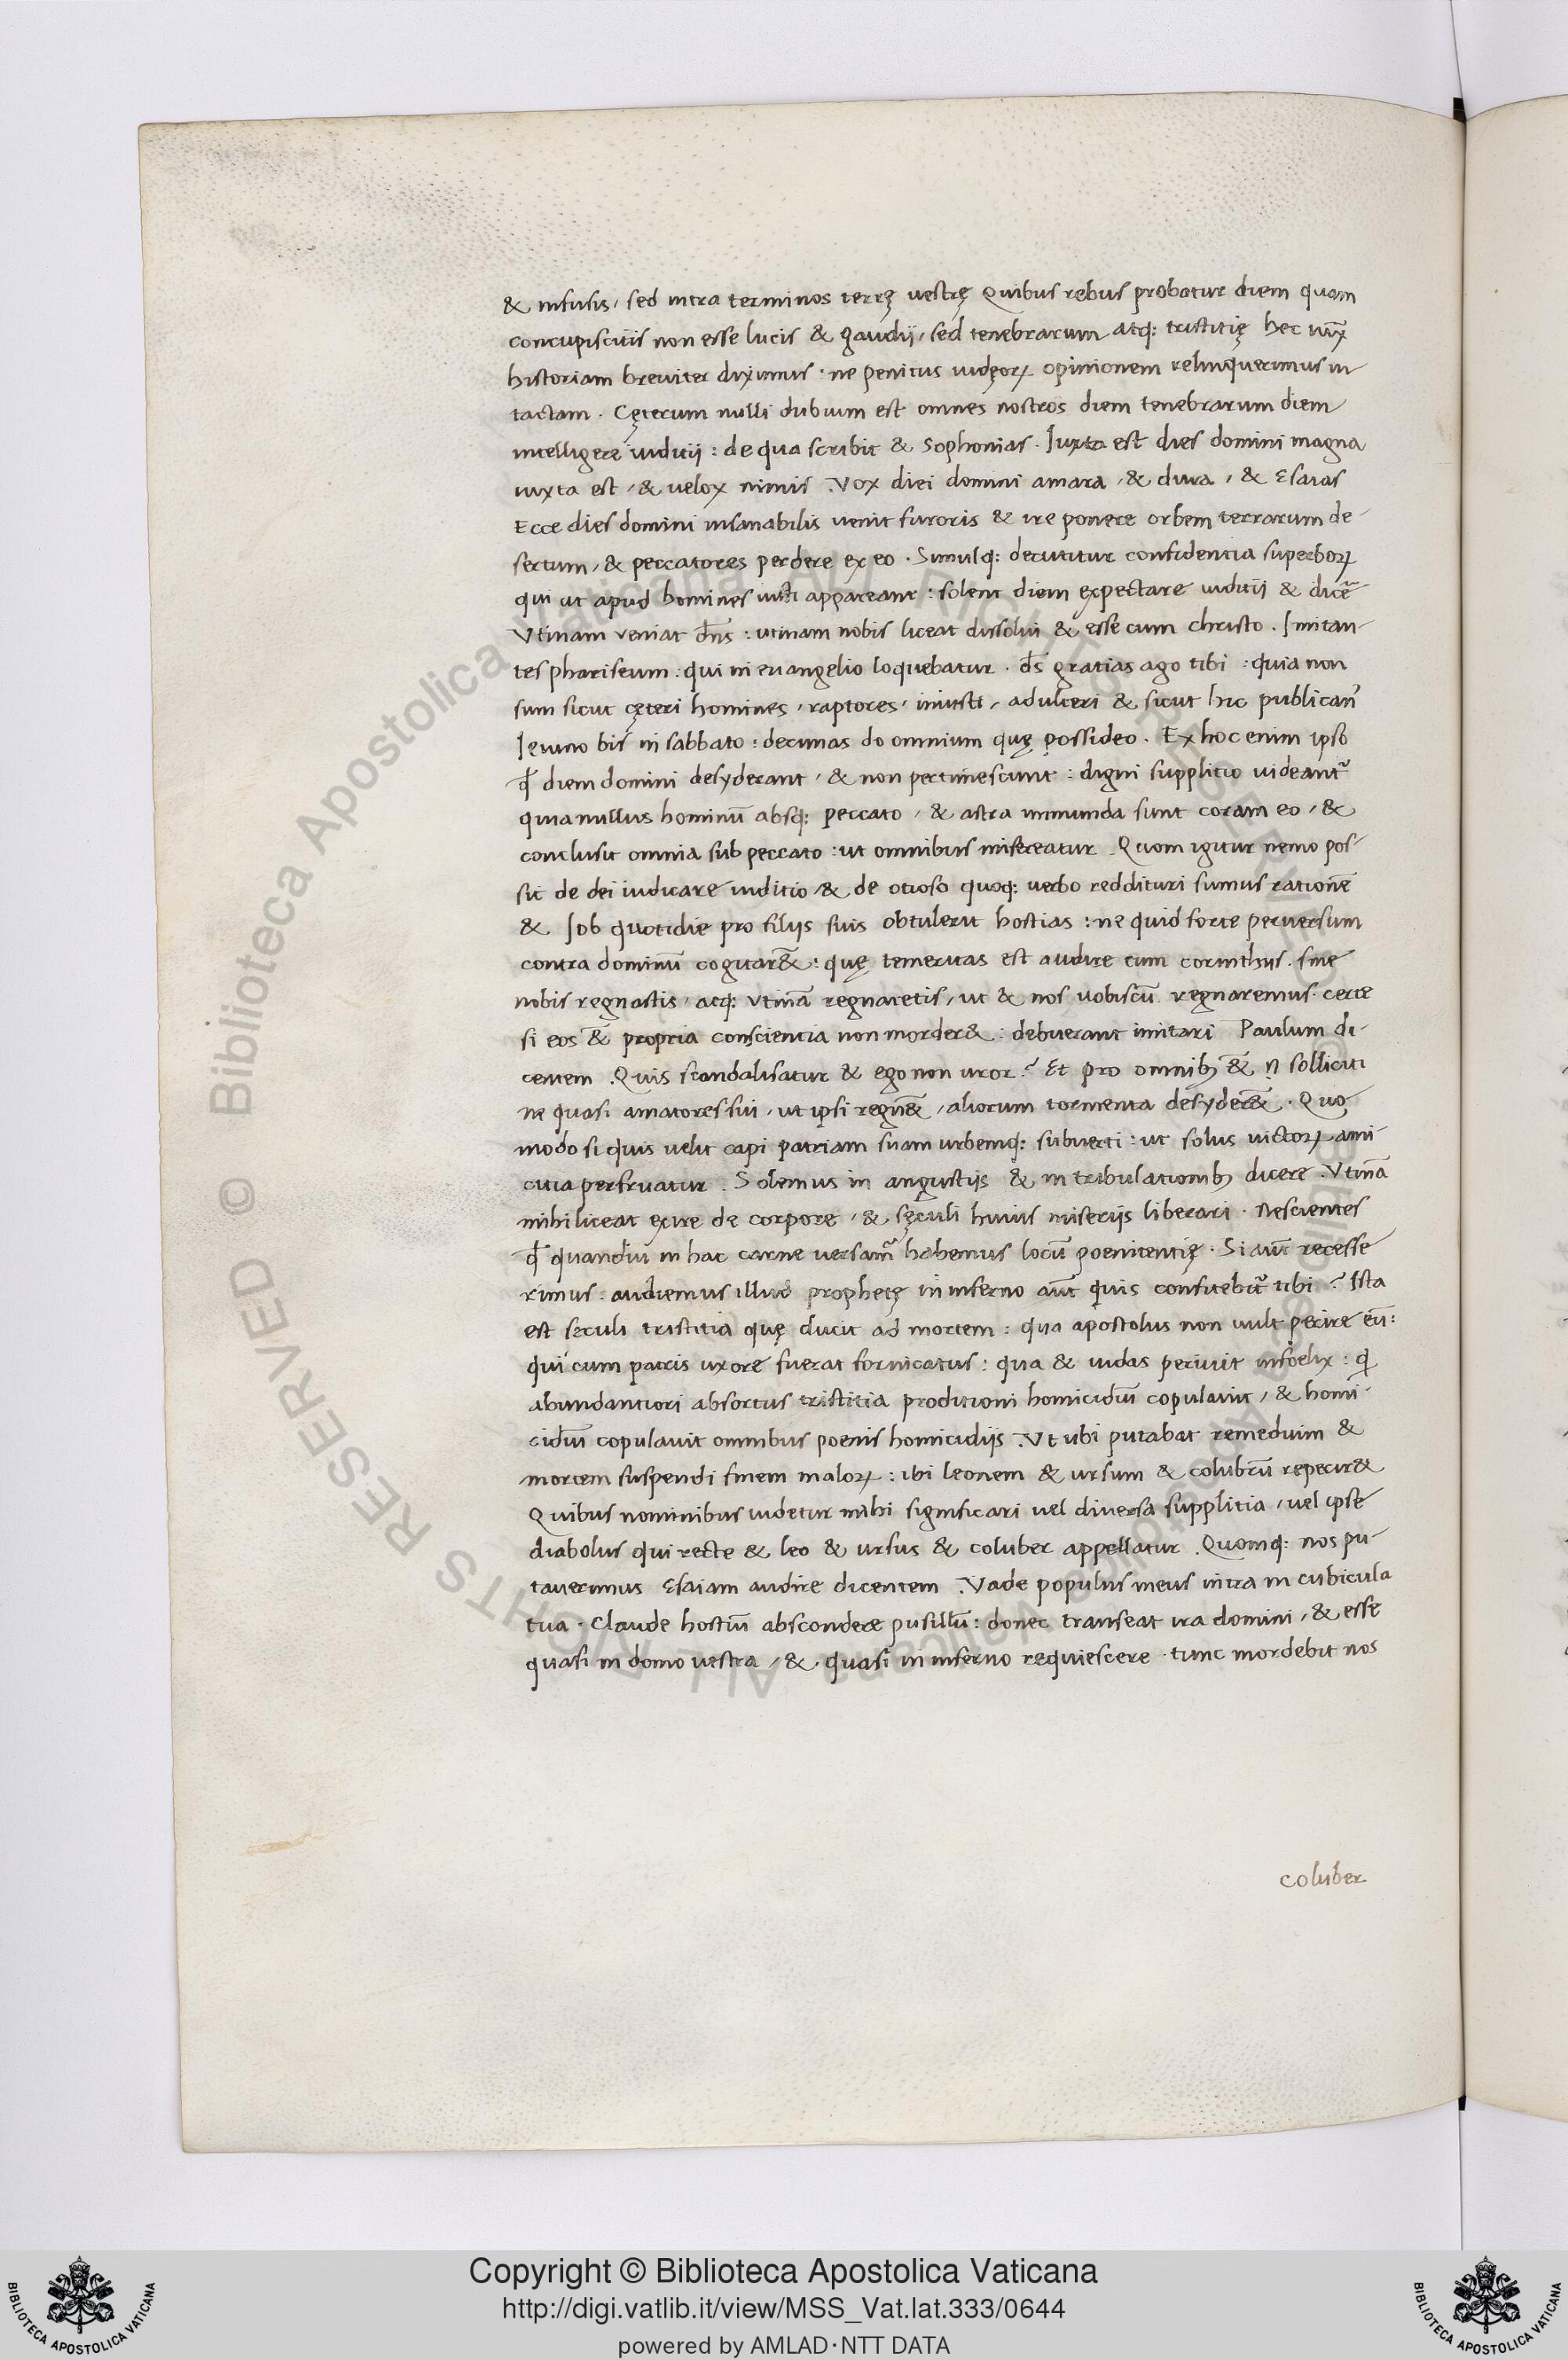 & infusis, sed intra terminos terrę uestrę Quibus rebus probatur diem quam
concupiscitis non esse lucis & gaudij, sed tenebrarum atq: tristitię hec iux̄
historiam breuiter diximus · ne penitus iudęoꝝ opinionem relinquerimus in
tactam · Cęterum nulli dubium est omnes nostros diem tenebrarum diem
intelligere iuditij : de qua scribit & Sophonias · Iuxta est dies domini magna
iuxta est, & uelox nimis . Vox diei domini amara, & dura, & Esaias
Ecce dies domini insanabilis uenit furoris & ire ponere orbem terrarum de-
sertum, & peccatores perdere ex eo · Simulq: decutitur confidentia superboꝝ
qui ut apud homines iusti appareant : solent diem expectare iuditij & dicē
Vtinam veniat dn̄s : utinam nobis liceat dissolui & esse cum christo . Imitan-
tes phariseum : qui in euangelio loquebatur · ds̄ gratias ago tibi : quia non
sum sicut cęteri homines, raptores, iniusti, adulteri & sicut hic publicanꝰ
Ieiuno bis in sabbato : decimas do omnium quę possideo . Ex hoc enim ipso
ꝙ diem domini desyderant, & non pertimescunt : digni supplitio uideantᷣ
quia nullus hominū absq: peccato, & astra immunda sunt coram eo, &
conclusit omnia sub peccato : ut omnibus misereatur . Quom igitur nemo pos-
sit de dei iudicare iuditio, & de otioso quoq: uerbo reddituri sumus rationē
& Iob quotidie pro filijs suis obtulerit hostias : ne quid forte peruersum
contra dominū cogitar&̄ : quę temeritas est audire cum corinthijs . sine
nobis regnastis, atq: vtinā regnaretis, ut & nos uobiscū regnaremus · certe
si eos & propria conscientia non morder& : debuerant imitari Paulum di-
centem . Quis scandalisatur & ego non uror ? Et pro omnibꝫ &̄ n̄ solliciti
ne quasi amatores sui, ut ipsi regn&̄, aliorum tormenta desyder&̄ · Quo
modo si quis uelit capi patriam suam urbemq: subuerti : ut solus uictoꝝ ami-
citia perfruatur . Solemus in angustijs & in tribulationibꝫ dicere . Vtinā
mihi liceat exire de corpore, & sęculi huius miserijs liberari · Nescientes
ꝙ quandiu in hac carne versamᷣ habemus locū poenitentię · Si aut̄ recesse
rimus : audiemus illud prophetę in inferno aut̄ quis confitebitᷣ tibi ? Ista
est seculi tristitia quę ducit ad mortem : qua apostolus non uult perire eū :
qui cum patris uxore fuerat fornicatus : qua & iudas periuit infoelix : q̄
abundantiori absortus tristitia proditioni homicidiū copulauit, & homi-
cidiū copulauit omnibus poenis homicidijs . Vt ubi putabat remedium &
mortem suspendi finem maloꝝ : ibi leonem & ursum & colubrū reperir&
Quibus nominibus uidetur mihi significari uel diuersa supplitia, uel ipse
diabolus qui recte & leo & ursus & coluber appellatur . Quomq: nos pu-
tauerimus Esaiam audire dicentem . Vade populus meus intra in cubicula
tua · Claude hostiū abscondere pusillū : donec transeat ira domini, & esse
quasi in domo uestra, & quasi in inferno requiescere · tunc mordebit nos
coluber
Copyright © Biblioteca Apostolica Vaticana
http://digi.vatlib.it/view/MSS_Vat.lat.333/0644
powered by AMLAD·NTT DATA